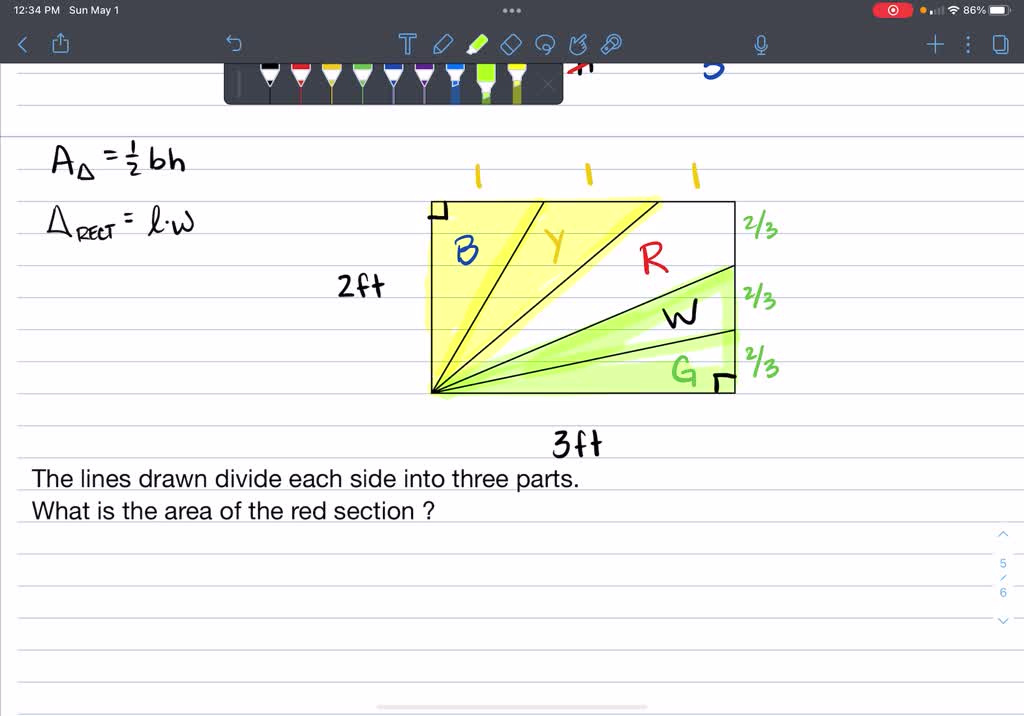 12:34 PM Sun May 1
86%
T
3
A△ = 1/2 bh
1 1 1
△RECT = l·w
2/3
B Y R
2ft
2/3
W
2/3
G
3ft
The lines drawn divide each side into three parts.
What is the area of the red section ?
5
/
6